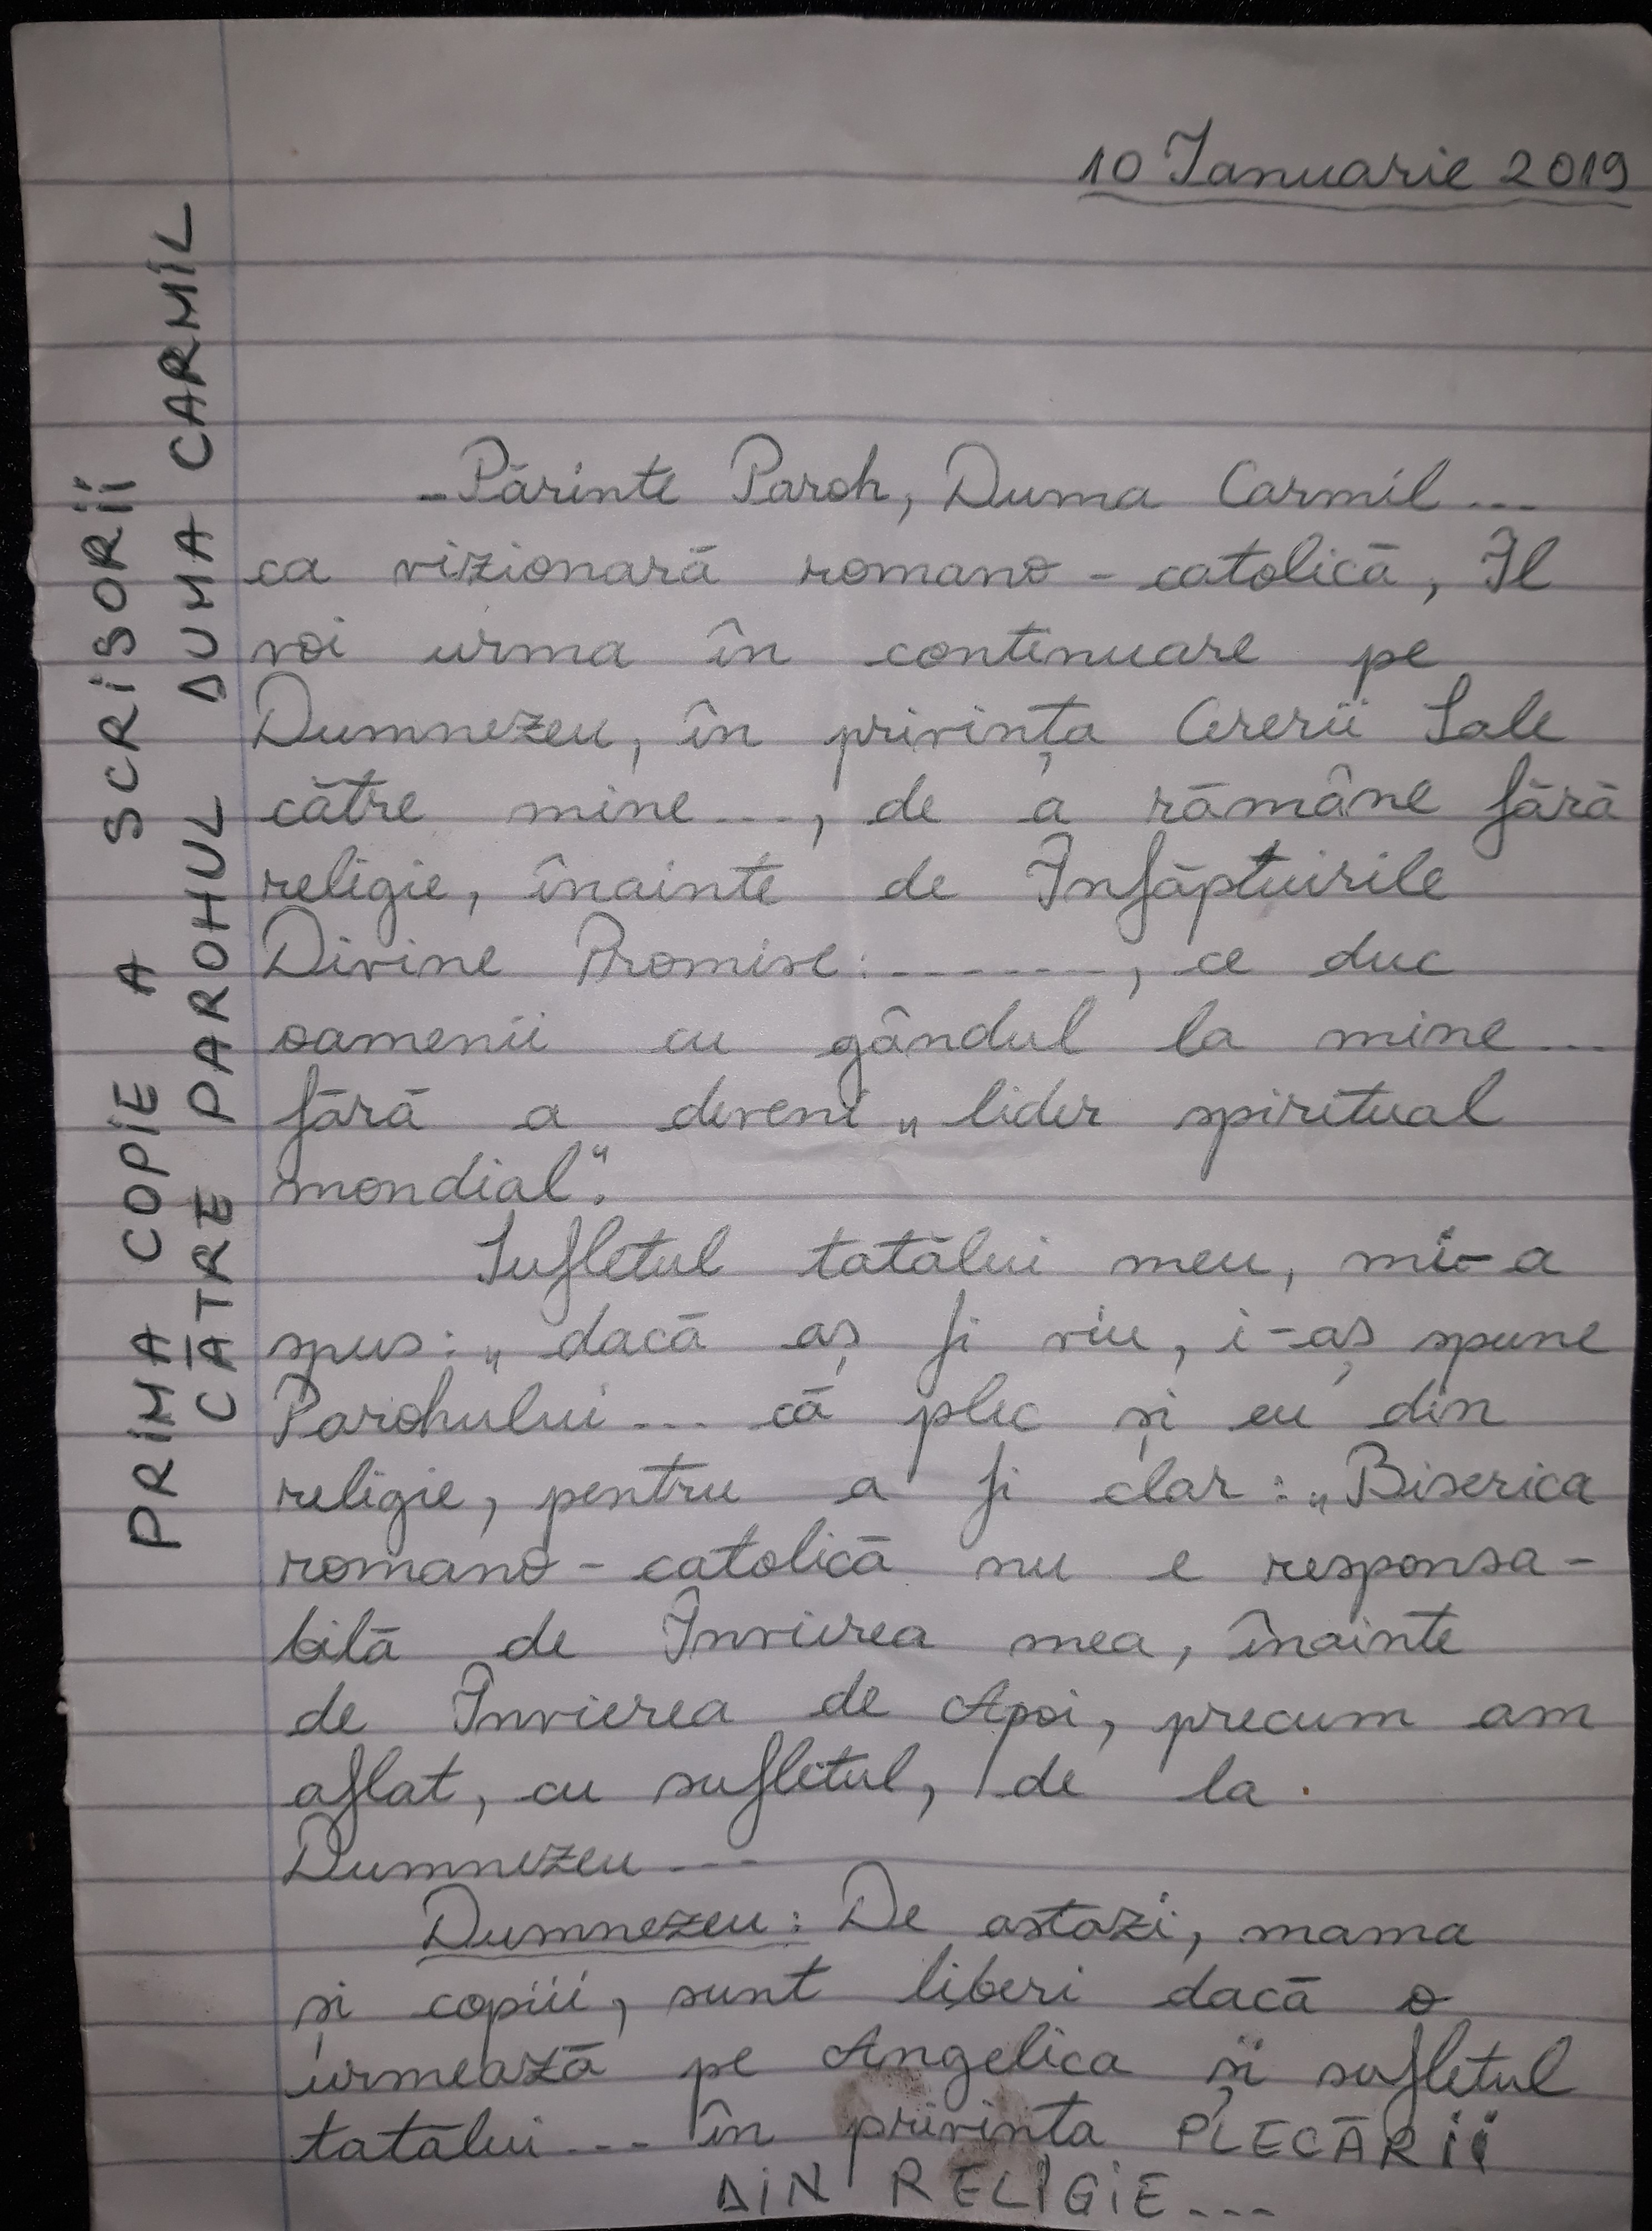 10 Ianuarie 2019
PRIMA COPIE A SCRISORII
CĂTRE PAROHUL DUMA CARMIL
-Părinte Paroh, Duma Carmil...
ca vizionară romano-catolică, Îl
voi urma în continuare pe
Dumnezeu, în privința Cererii Sale
către mine..., de a rămâne fără
religie, înainte de Înfăptuirile
Divine Promise: -------, ce duc
oamenii cu gândul la mine...
fără a deveni „lider spiritual
mondial“.
Sufletul tatălui meu, mi-a
spus: „dacă aș fi viu, i-aș spune
Parohului... că plec și eu din
religie, pentru a fi clar: „Biserica
romano-catolică nu e responsa-
bilă de Învierea mea, înainte
de Învierea de Apoi, precum am
aflat, cu sufletul, de la
Dumnezeu...
Dumnezeu: De astazi, mama
și copiii, sunt liberi dacă o
urmează pe Angelica și sufletul
tatălui... în privința PLECĂRII
DIN RELIGIE...